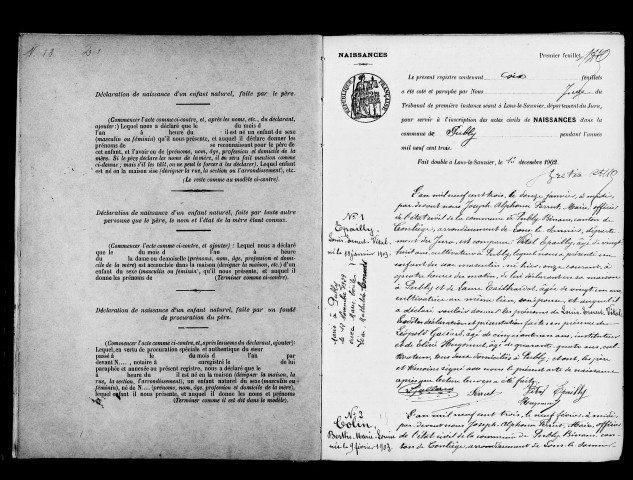 Déclaration de naissance d'un enfant naturel, faite par le père.
(Commencer l'acte comme ci-contre, et, après les noms, etc., du déclarant,
ajouter :) Lequel nous a déclaré que le du mois d
l'an à heure du il est né un enfant du sexe
(masculin ou féminin), qu'il nous présente, et auquel il déclare donner les
prénoms de se reconnaissant pour le père de
cet enfant, et l'avoir eu de (prénoms, nom, âge, profession et domicile de la
mère. Si le père déclare les noms de la mère, il en sera fait mention comme
ci-dessus ; mais s'il les tait, on ne peut le forcer à les déclarer). Lequel
est né en la maison sise (désigner la rue, la section ou l'arrondissement), etc.
(Le reste comme au modèle ci-contre).
Déclaration de naissance d'un enfant naturel, faite par toute autre
personne que le père, le nom et l'état de la mère étant connus.
(Commencer l'acte comme ci-contre, et ajouter) : Lequel nous a déclaré
que le du mois d l'an à heure
du la dame ou demoiselle (prénoms, nom, âge, profession et domi-
cile de la mère) est accouchée dans la maison (désigner la maison, etc.) d'un
enfant du sexe (masculin ou féminin), qu'il nous présente, et auquel il
donne les prénoms de (Terminer comme ci-contre).
Déclaration de naissance d'un enfant naturel, faite par un fondé
de procuration du père.
(Commencer l'acte comme ci-contre, et, après les noms du déclarant, ajouter) :
Lequel, en vertu de procuration spéciale et authentique du sieur
passé à le du mois d l'an par
devant , notaire à enregistré le de lui
paraphée et annexée au présent registre, nous a déclaré que le
à heure il est né en la maison (désigner la maison, la
rue, la section, l'arrondissement), un enfant naturel du sexe (masculin ou
féminin), né de N... (prénoms, nom, âge, profession et domicile de la mère),
lequel enfant il nous présente et auquel il donne les noms et prénoms de
(Terminer comme il est dit dans le modèle).
NAISSANCES
Premier feuillet,
RÉPUBLIQUE FRANÇAISE
Le présent registre contenant feuillets
a été coté et paraphé par Nous Juge du
Tribunal de première instance séant à Lons-le-Saunier, département du Jura,
pour servir à l'inscription des actes civils de NAISSANCES dans la
commune de Publy pendant l'année
mil neuf cent trois.
Fait double à Lons-le-Saunier, le 1er décembre 1902.
No 1
Epailly
Louis Ernest Vital
né le 12 janvier 1903.
L'an mil neuf cent trois, le douze janvier, à midi
par devant nous Joseph Alphonse Perrut, Maire, officier
de l'état civil de la commune de Publy Binans, canton de
Conliège, arrondissement de Lons le Saunier, dépar-
tement du Jura, est comparu Vital Epailly âgé de vingt
huit ans cultivateur à Publy, lequel nous a présenté un
enfant du sexe masculin, né hier onze courant, à
quatre heures du matin, de lui déclarant en sa maison
à Publy et de Laure âgée de vingt un ans
cultivatrice au même lieu, son épouse, et auquel il a
déclaré vouloir donner les prénoms de Louis Ernest Vital.
déclaration et présentation faites en présence de
Léopold Gaillard, âgé de cinquante ans instituteur
et de Elie Huguenet, âgé de quarante quatre ans, cul
tivateur, tous deux domiciliés à Publy ; et ont, le père
et témoins signé avec nous le présent acte de naissance
après que lecture leur en a été faite.
Gaillard Perrut Vital Epailly
Huguenet
No 2
Colin
Berthe Marie Louise
née le 9 février 1903
L'an mil neuf cent trois, le neuf février, à midi
par devant nous Joseph Alphonse Perrut, Maire, officier
de l'état civil de la commune de Publy Binans, can-
ton de Conliège, arrondissement de Lons le Saunier